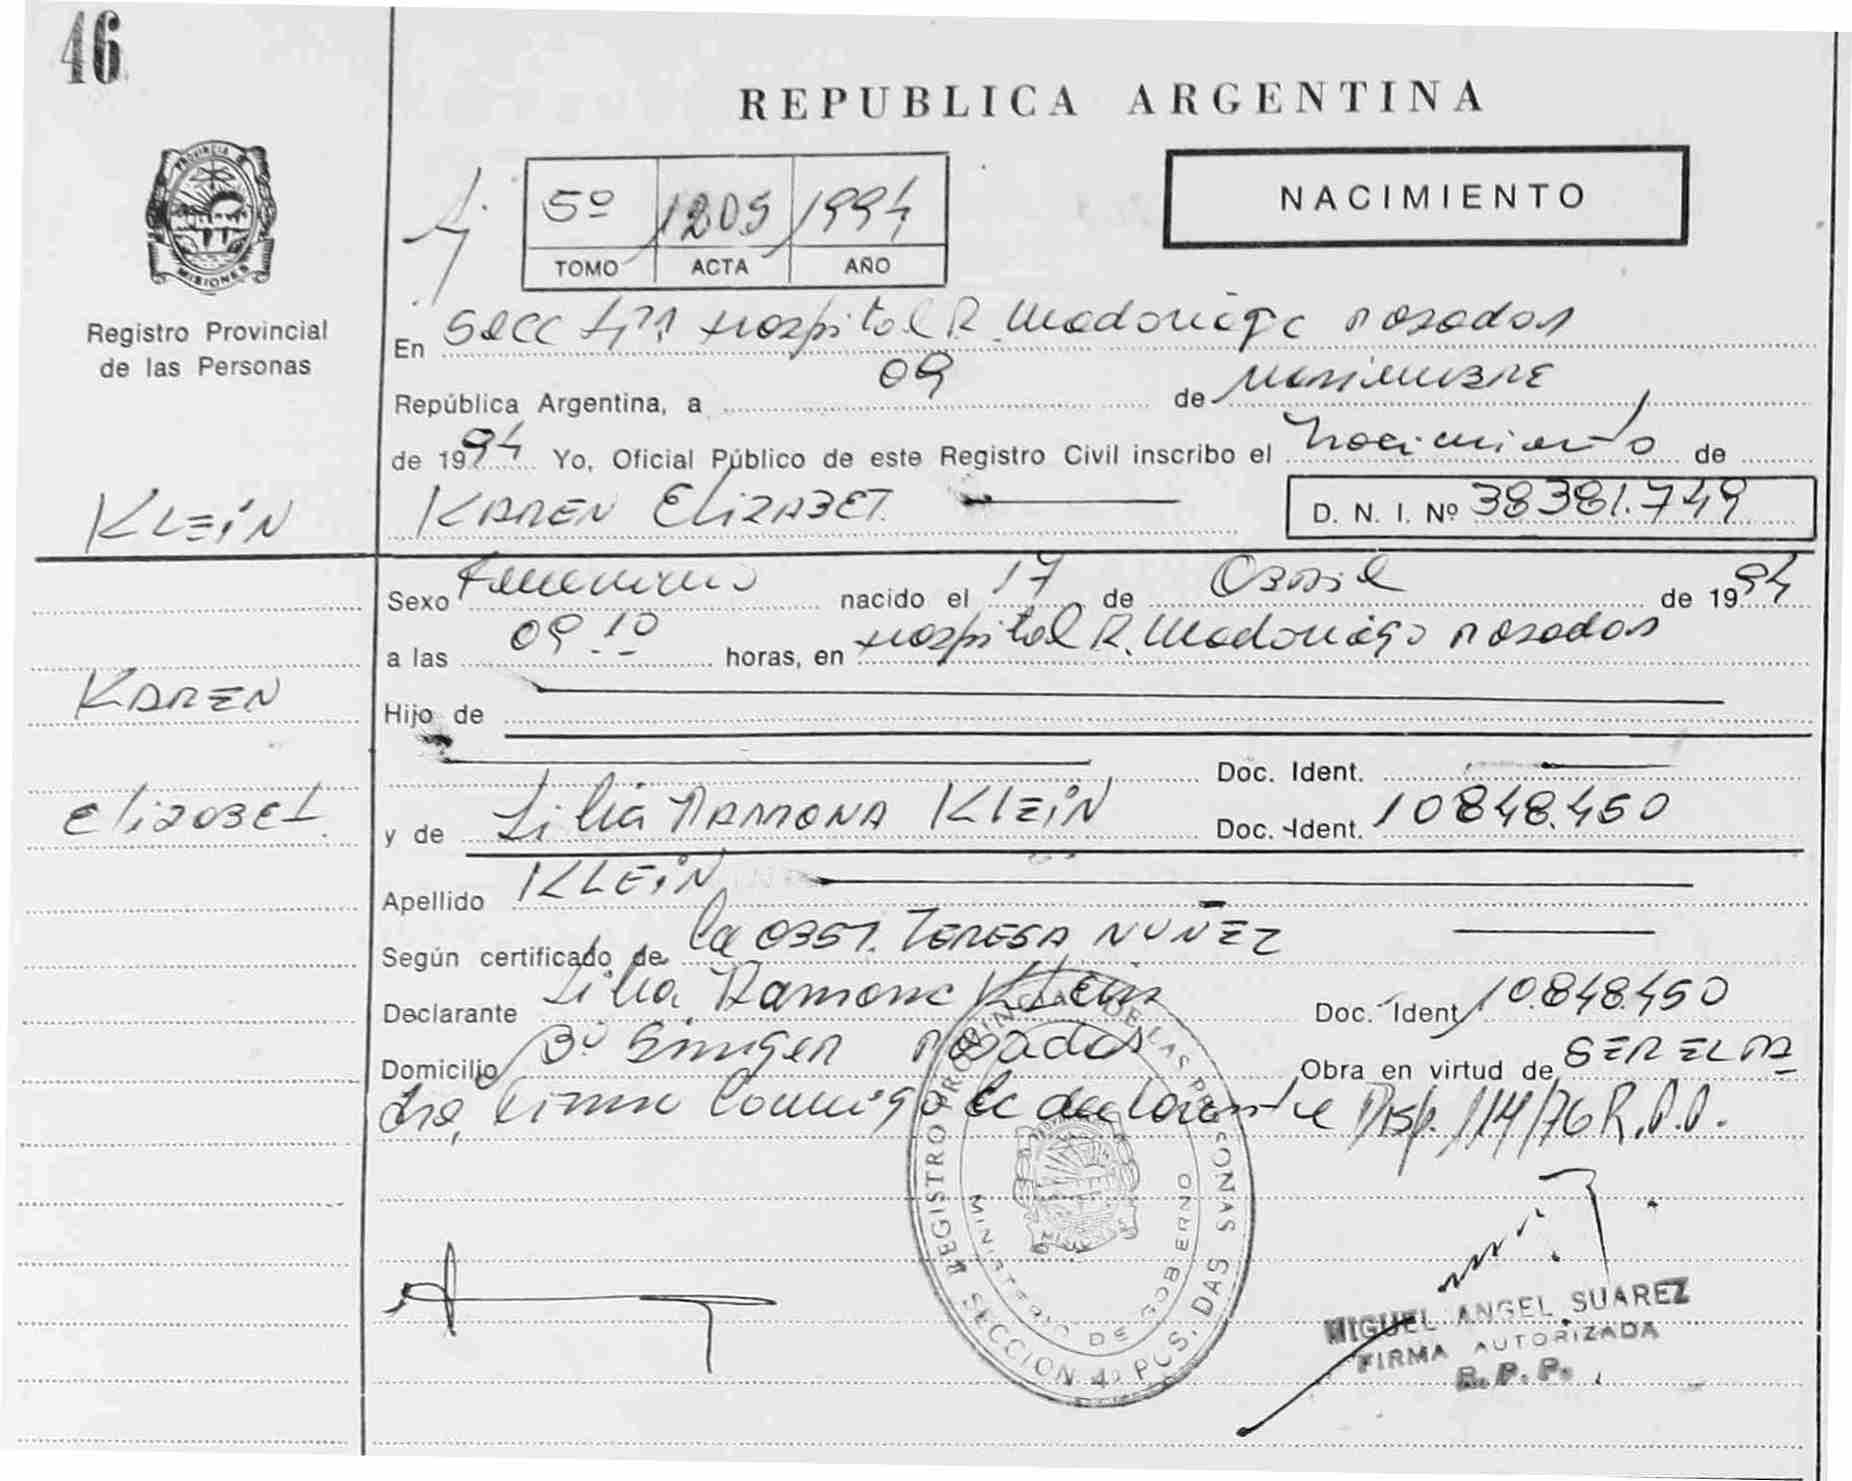 46
REPUBLICA ARGENTINA
PROVINCIA DE
MISIONES
Registro Provincial
de las Personas
5º 1205 1994
TOMO ACTA AÑO
NACIMIENTO
En Secc 4ª Hospital R. Madariaga Posadas
República Argentina, a 09 de Noviembre
de 1994 Yo, Oficial Público de este Registro Civil inscribo el Nacimiento de
KLEiN
KAREN ELiZABET. D. N. I. Nº 38381.749
Sexo Femenino nacido el 17 de Abril de 1994
a las 09.10 horas, en Hospital R. Madariaga Posadas
KAREN
Hijo de
Doc. Ident.
Elizabet.
y de Lilia RAMONA KLEiN Doc. Ident. 10848.450
Apellido KLEiN
Según certificado de la OBST. TERESA NUÑEZ
Declarante Lilia Ramona Klein Doc. Ident 10.848.450
Domicilio Bº Posadas Obra en virtud de SER EL PA
dre, firma conmigo la declarante Disp. 114/76 R.P.P.
REGISTRO PROVINCIAL DE LAS PERSONAS
MINISTERIO DE GOBIERNO
SECCION 4ª PCS. DAS
MIGUEL ANGEL SUAREZ
FIRMA AUTORIZADA
R. P. P.